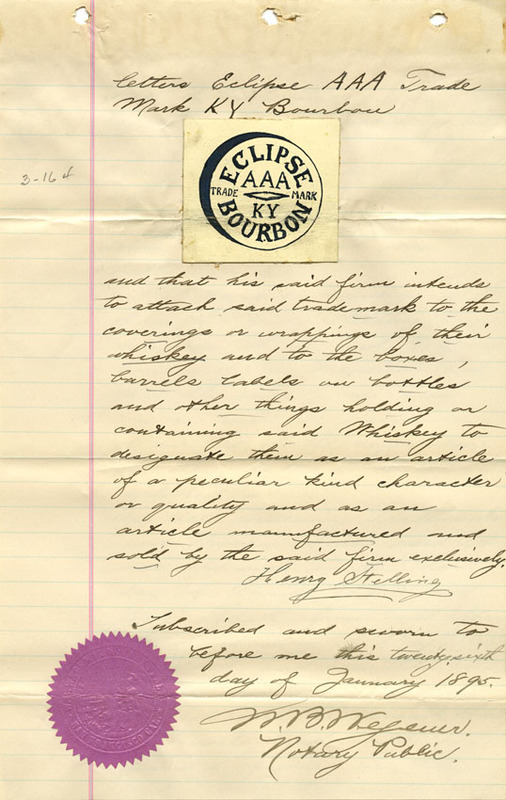 letters Eclipse AAA Trade
Mark KY Bourbon
3-16
ECLIPSE
AAA
TRADE MARK
KY
BOURBON
and that his said firm intends
to attach said trademark to the
coverings or wrappings of their
whiskey and to the boxes,
barrels labels on bottles
and other things holding or
containing said Whiskey to
designate them as an article
of a peculiar kind character
or quality and as an
article manufactured and
sold by the said firm exclusively.
Henry Stelling
Subscribed and sworn to
before me this twenty sixth
day of January 1895.
W.B. Wegener.
Notary Public.